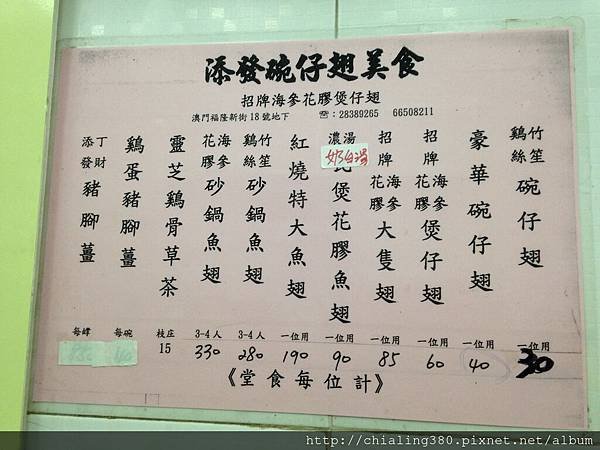 添發碗仔翅美食
招牌海參花膠煲仔翅
澳門福隆新街18號地下 ☎:28389265 66508211
竹笙雞絲碗仔翅 一位用 30
豪華碗仔翅 一位用 40
招牌海參花膠煲仔翅 一位用 60
招牌海參花膠大隻翅 一位用 85
濃湯 奶白湯 煲花膠魚翅 一位用 90
紅燒特大魚翅 一位用 190
竹笙鷄絲砂鍋魚翅 3-4人 280
海參花膠砂鍋魚翅 3-4人 330
靈芝鷄骨草茶 枝庄 15
鷄蛋豬腳薑 每碗 40
添發丁財豬腳薑 每罈
《堂食每位計》
http://chialing380.pixnet.net/album